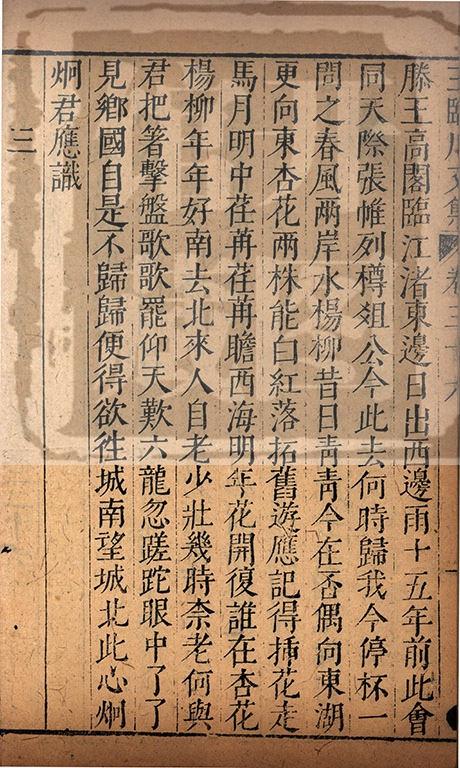 王臨川文集 卷三十六
滕王高閣臨江渚東邊日出西邊雨十五年前此會
同天際張帷列樽俎公今此去何時歸我今停杯一
問之春風兩岸水楊柳昔日青青今在否偶向東湖
更向東杏花兩株能白紅落拓舊遊應記得插花走
馬月明中荏苒荏苒瞻西海明年花開復誰在杏花
楊柳年年好南去北來人自老少壯幾時奈老何與
君把箸擊盤歌歌罷仰天歎六龍忽蹉跎眼中了了
見鄉國自是不歸歸便得欲徃城南望城北此心炯
炯君應識
三